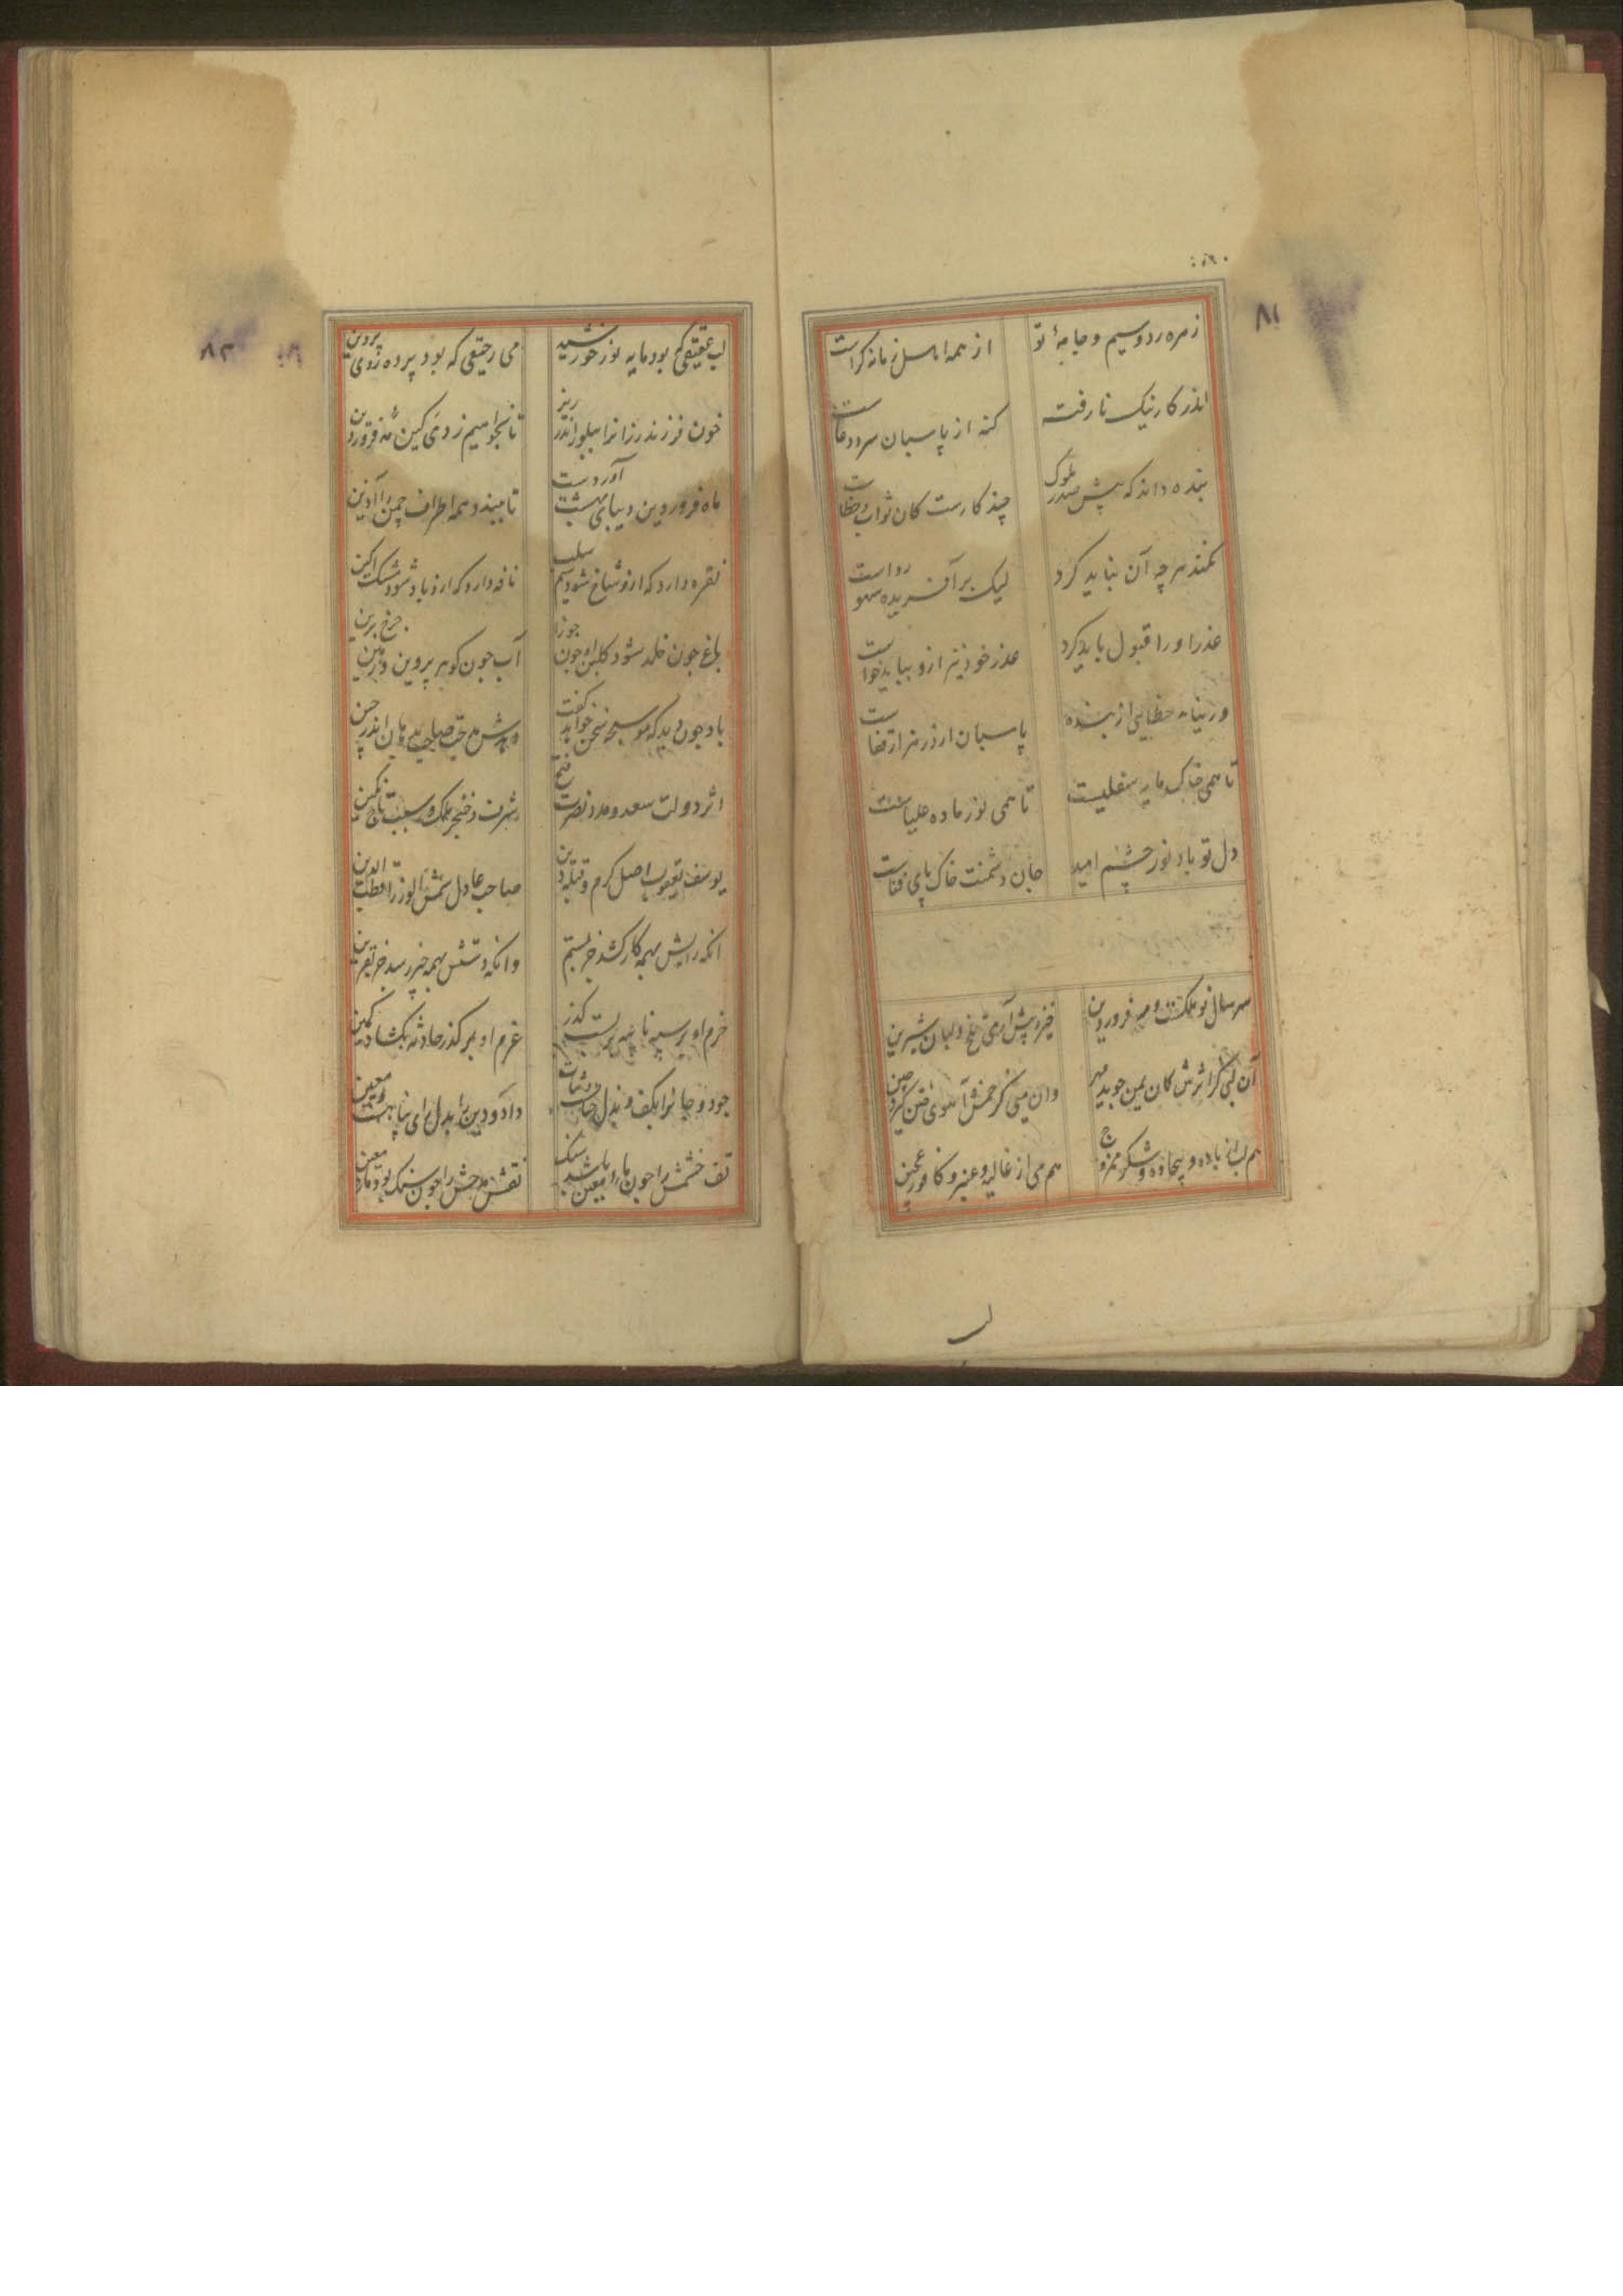 ۸۱
زمره ردوسیم و جامهٔ تو
از همه اهل زمانه کراست
اندر کار نیک نا رفته
کنه از پاسبان سرود
بنده داند که پیش صدر ملوک
چند کارست کان ثواب و خطاست
نکند هرچه آن نباید کرد
لیک بر آفریده سهو رواست
عذر او را قبول باید کرد
عذر خود نیز ازو بباید خواست
ور نیابد خطایی از بنده
پاسبان
تا همی خاک مایه سفلیست
تا همی نور ماده علیاست
دل تو باد نور چشم امید
جان دشمنت خاک پای فناست
سر سال نو و مه فروردین
خیز و پیش آر می تلخ و لبان شیرین
آن لبی کز اثرش کان یمن جوید مهر
وان میی کز آهوی ختن گیرد چین
هم لب از باده و بیجاده و شکر ممزوج
هم می از غالیه و عنبر و کافور عجین
لب
۸۲
لب عقیقی که بود مایه نور خورشید
می رحیقی که بود پرده زوی پروین
خون فرزند رزانرا ببلور اندر ریز
تا بخواهیم ز دی کین مه فروردین
ماه فروردین دیبای بهشت آوردست
تا ببندد همه اطراف چمن را آذین
نقره دارد که ازو شاخ شود سیم سلب
نافه دارد که ازو باد شود مشک آکین
باغ چون خلد شود کلبن او چون جوزا
آب چون کوهر پروین و زمین چرخ برین
باد چون دید که موسیجه سخن خواهد کفت
اثر دولت سعد و مدد نصرت فتح
شرف خنجر ملک و سبب تاج نکین
یوسف یعقوب اصل کرم و قبله دین
صاحب عادل شمس الوزرا قطب الدین
انکه رایش بهمه کار کشد جز بستم
وانکه دستش بهمه چیز رسد جز
حزم او بر سپه نامیه بر بست گذر
عزم او بر گذر حادثه بگشاد کمین
جود و جانرا بکف و بذل حیاتست و ثبات
داد و دین را بدل و رای پناهست و معین
تف خشمش را چون ماء معین باشد سنگ
نقش مدحش را چون سنگ بود ماء معین